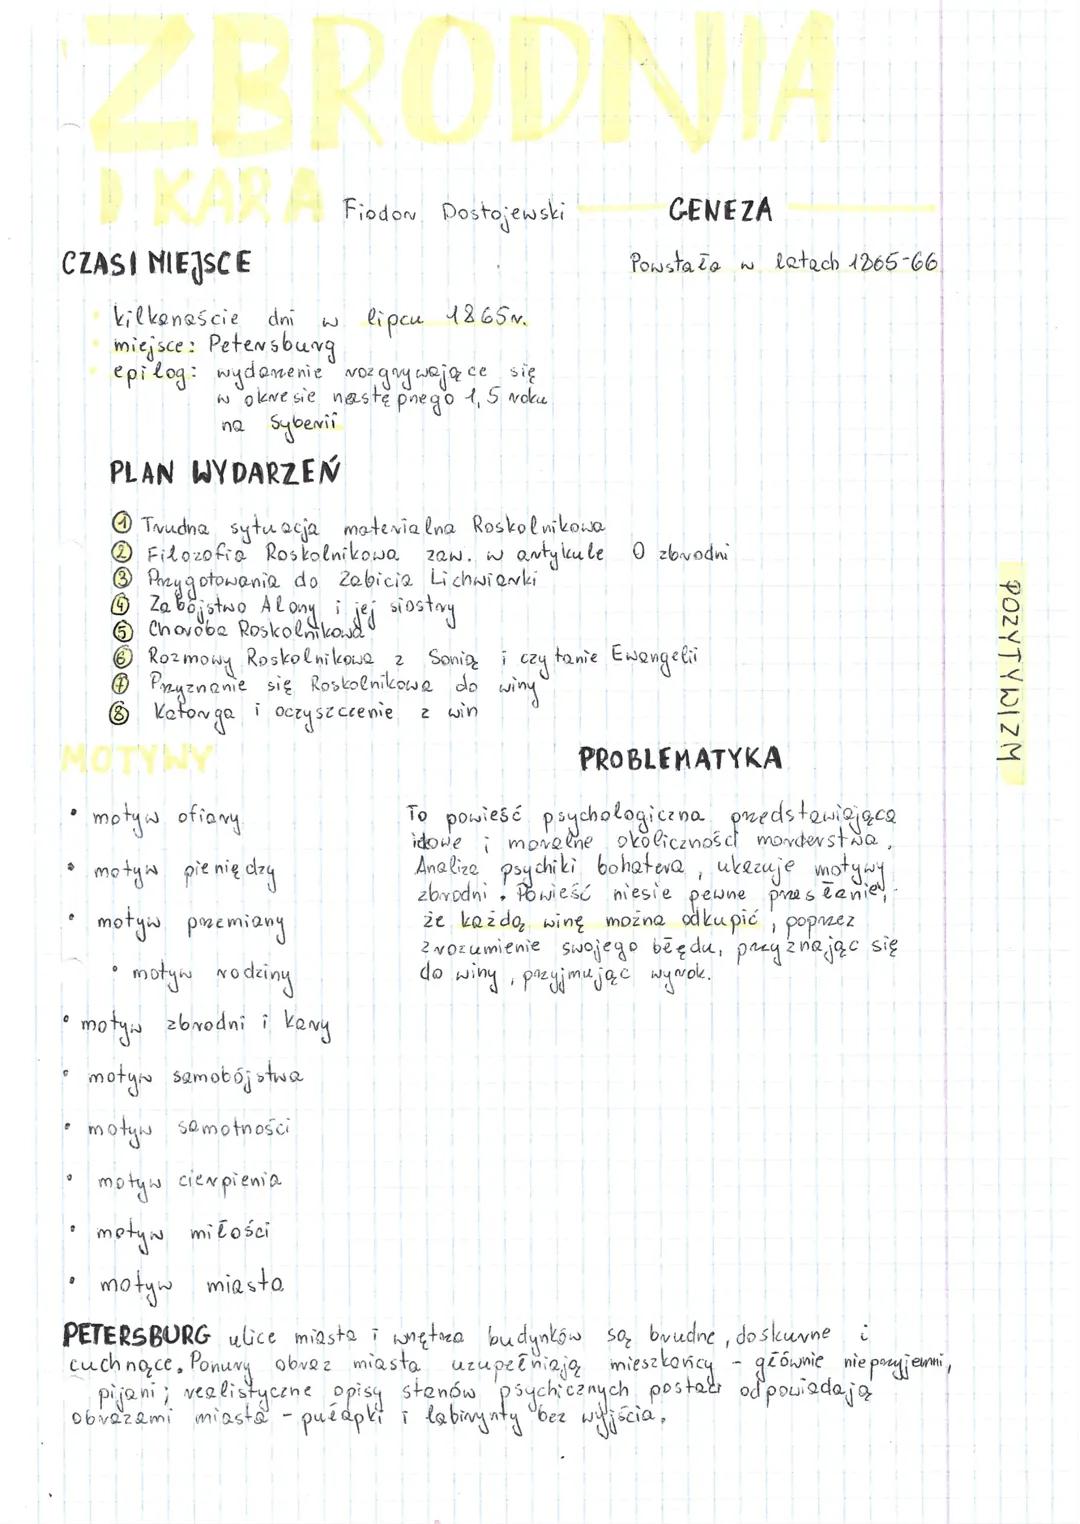 ZBRODNIA
I KARA
Fiodor Dostojewski
GENEZA
Powstała w latach 1865-66
CZAS I MIEJSCE
kilkanaście dni w lipcu 1865r.
miejsce: Petersburg
epilog: wydarzenie rozgrywające się
w okresie następnego 1,5 roku
na Syberii
PLAN WYDARZEŃ
① Trudna sytuacja materialna Roskolnikowa
② Filozofia Roskolnikowa zaw. w artykule O zbrodni
③ Przygotowania do Zabicia Lichwiarki
④ Zabójstwo Alony i jej siostry
⑤ Choroba Roskolnikowa
⑥ Rozmowy Roskolnikowa z Sonią i czytanie Ewangelii
⑦ Przyznanie się Roskolnikowa do winy
⑧ Katorga i oczyszczenie z win
POZYTYWIZM
MOTYWY
• motyw ofiary
• motyw pieniędzy
• motyw przemiany
• motyw rodziny
• motyw zbrodni i kary
• motyw samobójstwa
• motyw samotności
• motyw cierpienia
• motyw miłości
• motyw miasta
PROBLEMATYKA
To powieść psychologiczna przedstawiająca
idowe i moralne okoliczności morderstwa.
Analiza psychiki bohatera, ukazuje motywy
zbrodni. Powieść niesie pewne przesłanie,
że każdą winę można odkupić, poprzez
zrozumienie swojego błędu, przyznając się
do winy, przyjmując wyrok.
PETERSBURG ulice miasta i wnętrza budynków są brudne, doskurne i
cuchnące. Ponury obraz miasta uzupełniają mieszkańcy - głównie nieprzyjemni,
pijani; realistyczne opisy stanów psychicznych postaci odpowiadają
obrazami miasta - pułapki i labirynty bez wyjścia.